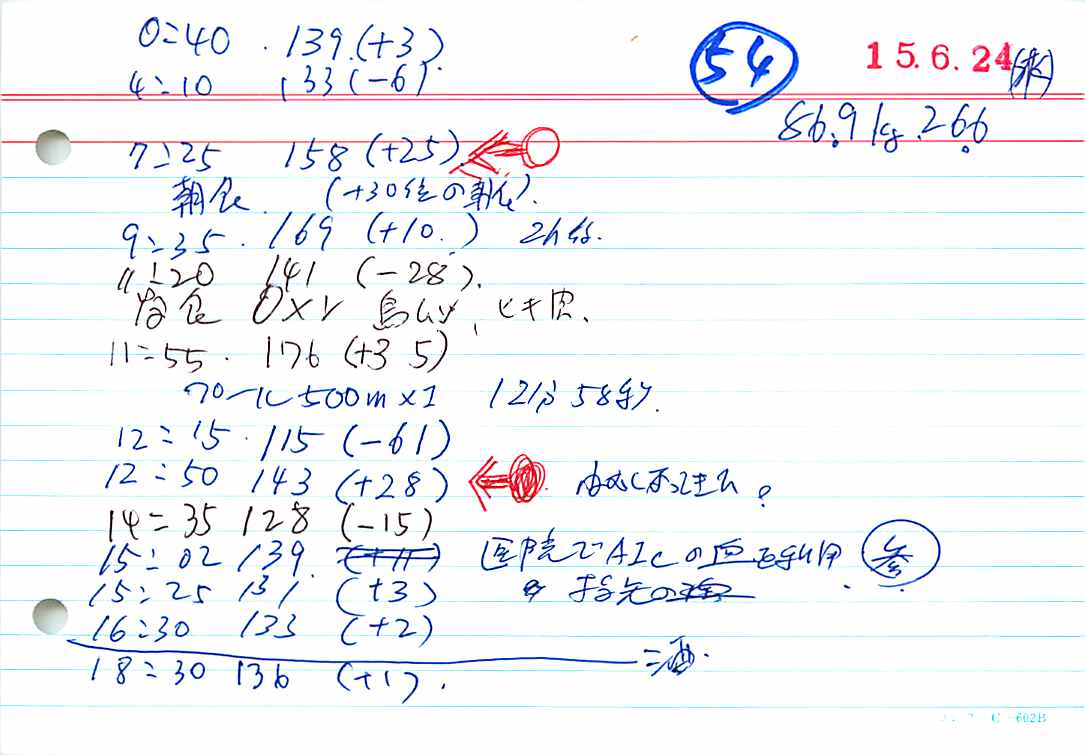 0:40 . 139 (+3).
54
15.6.24 (水)
4:10 133 (-6)
86.9 kg . 26.6
7:25 158 (+25).
朝食 (+30後の朝食).
9:35 . 169 (+10.) 2h後.
11:20 141 (-28).
昼食 OXY ヒキ肉、
11:55 . 176 (+35)
プール 500m×1 12分58秒.
12:15 . 115 (-61)
12:50 143 (+28)
14:35 128 (-15)
15:02 139. (+11) 医院でA1cの血 参
15:25 131 (+3) 〃 指先の
16:30 133 (+2)
18:30 136 (+1).
C-602B